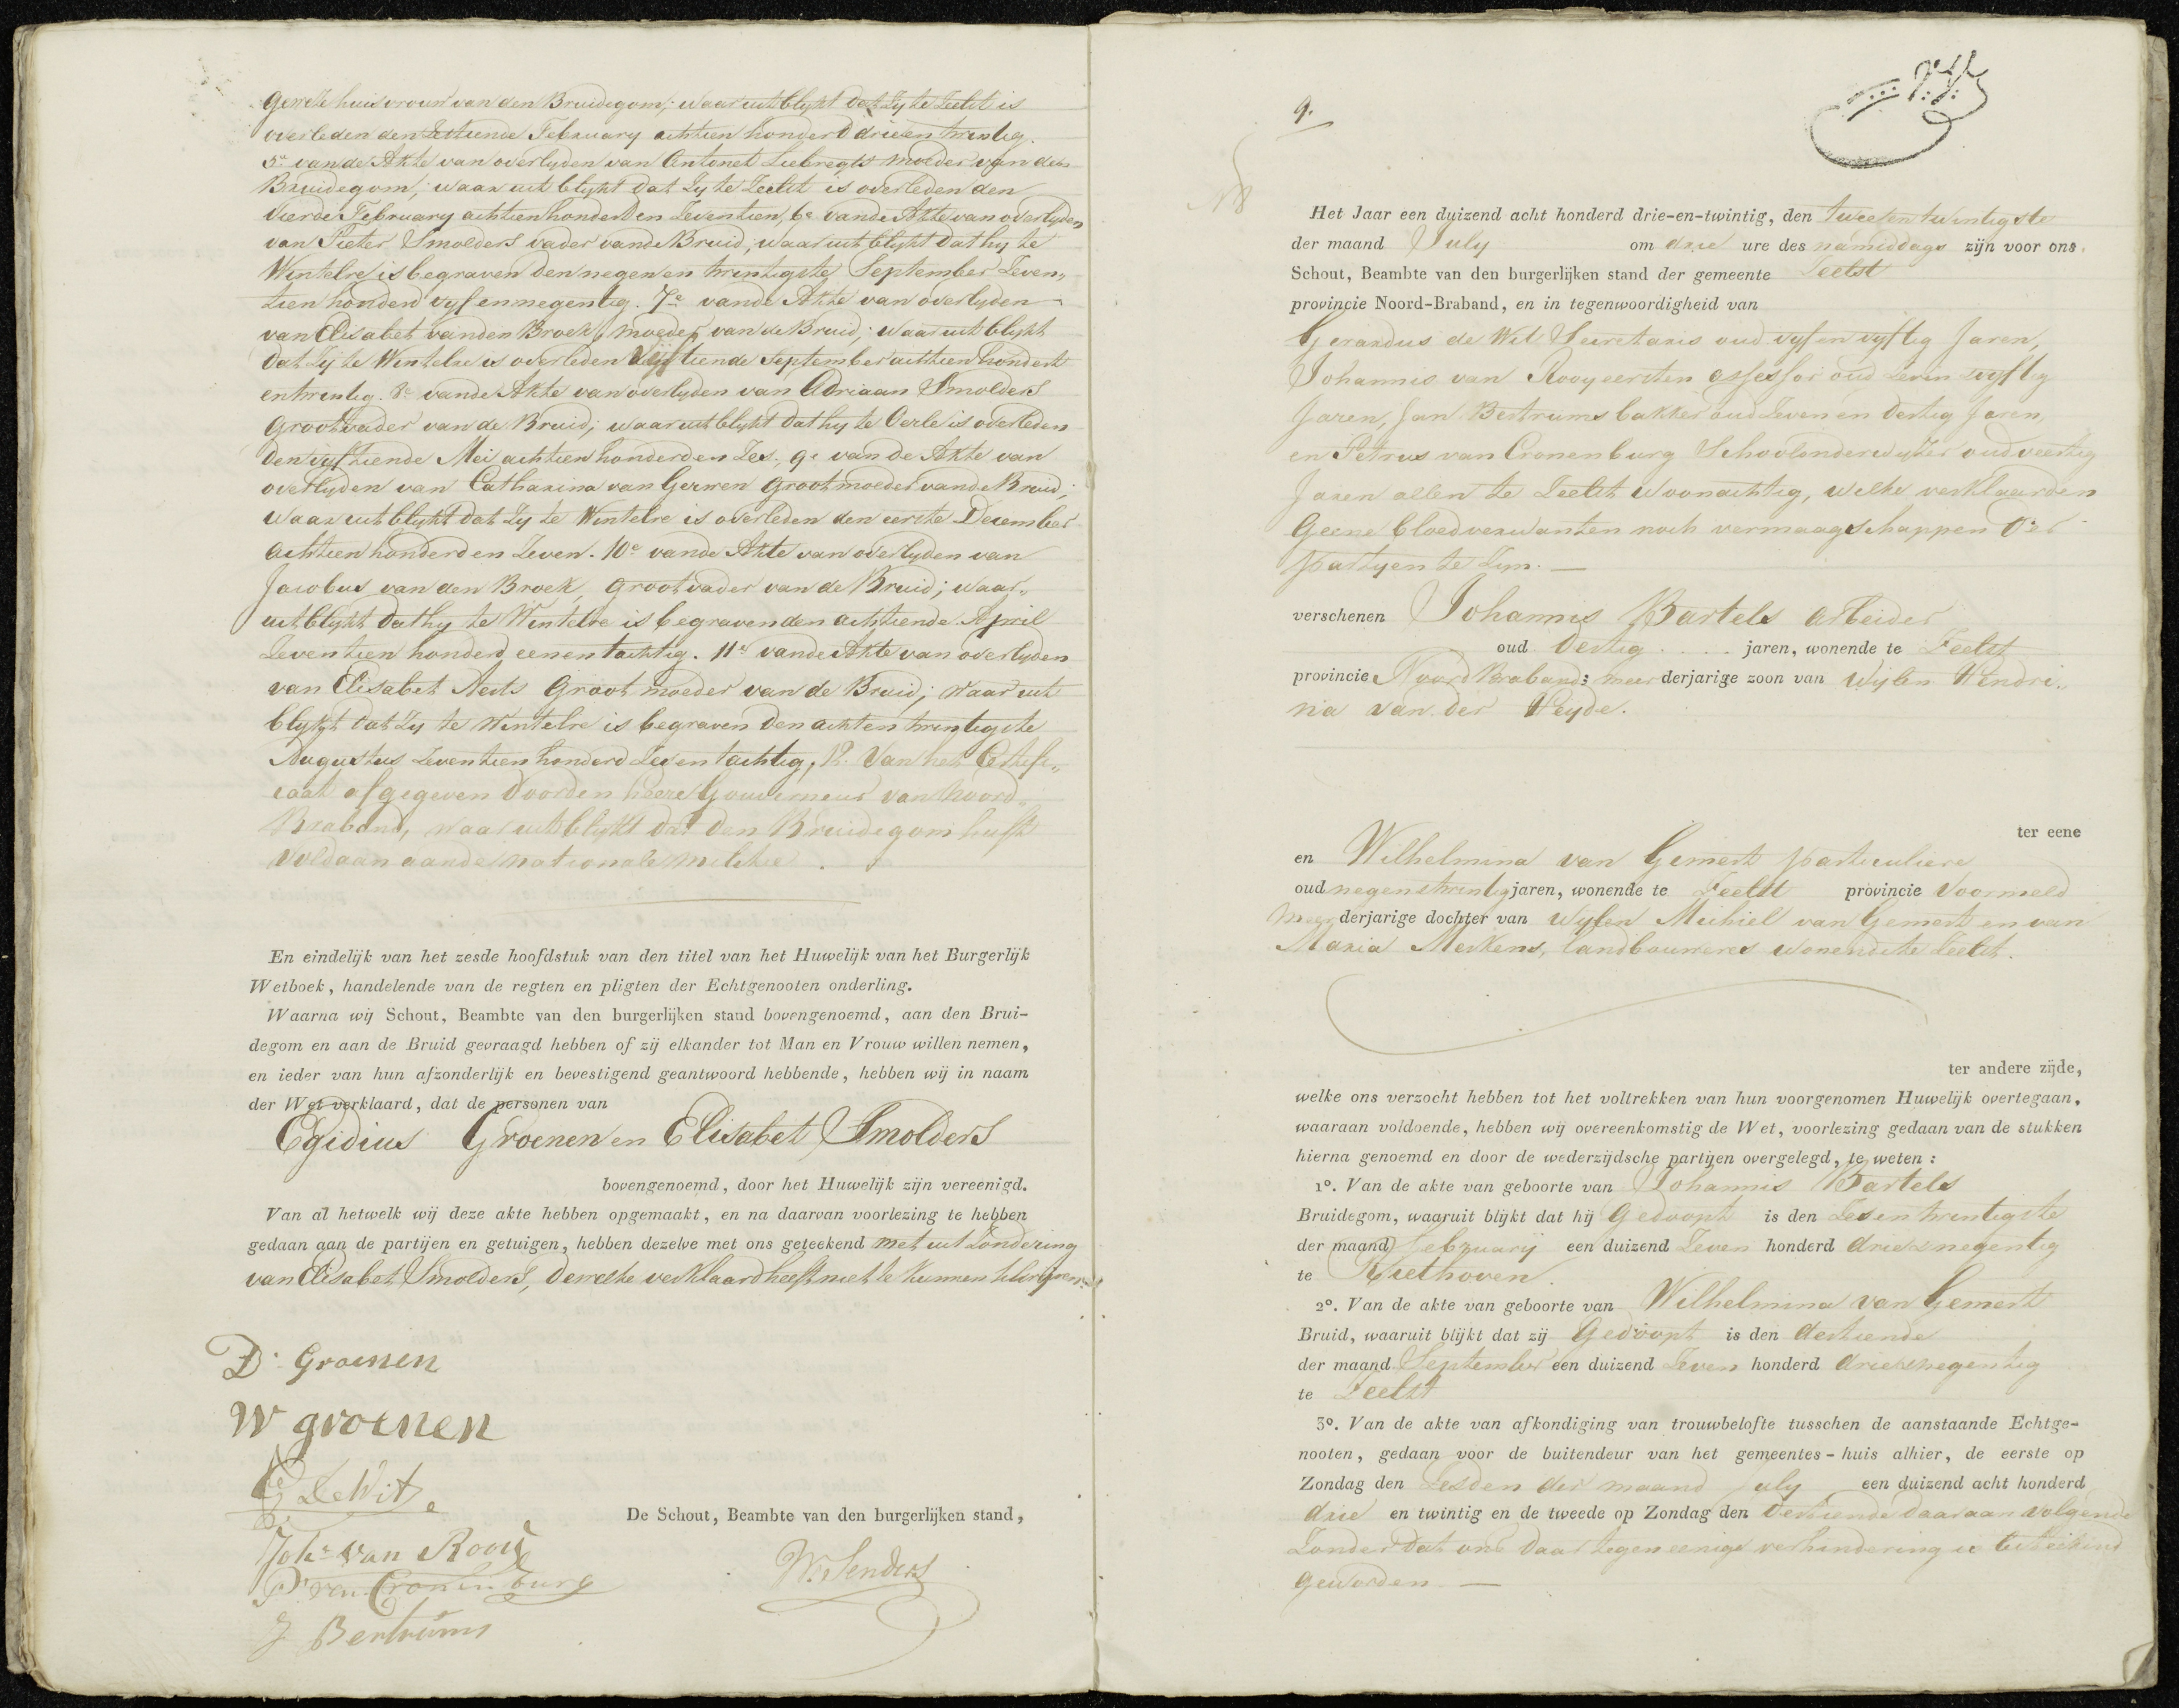 geweze huisvrouw van den Bruidegom; waar uit blijkt dat Zy te Zeelst is
overleden den Zestiende February achtien honderd drieen twintig.
5e. van de Akte van overlyden van Antonet Liebregts moeder van den
Bruidegom; waar uit blijkt dat Zy te Zeelst is overleden den
vierde February achtien honderd en Zeventien, 6e. van de Akte van overlyden
van Pieter Smolders vader van de Bruid; waar uit blijkt dat hy te
Wintelre is begraven den negenen twintigste September Zeven„
tien honderd vyf en negentig. 7e. van de Akte van overlyden
van Elisabet van den Broek, moeder van de Bruid; waar uit blijkt
dat Zy te Wintelre is overleden vijftiende September achtien hondert
en twintig. 8e. van de Akte van overlyden van Adriaan Smolders
Grootvader van de Bruid; waar uit blijkt dat hy te Oerle is overleden
den vyftiende Mei achtien honderd en Zes; 9e. van de Akte van
overlyden van Catharina van Gerwen Grootmoeder van de Bruid;
waar uit blijkt dat Zy te Wintelre is overleden den eerste December
achtien honderd en Zeven. 10e van de Akte van overlyden van
Jacobus van den Broek, Grootvader van de Bruid; waar„
uit blijkt dat hy te Wintelre is begraven den achtiende April
Zeventien honderd eenen tachtig. 11e van de Akte van overlyden
van Elisabet Aerts Groot moeder van de Bruid; waar uit
blijkt dat Zy te Wintelre is begraven den achten twintigste
Augustus Zeventien honderd Zes en tachtig, 12. Van het Certifi„
caat afgegeven door den heere Gouverneur van Noord„
Braband, waar uit blijkt dat den Bruidegom heeft
voldaan aan de nationale militie.
En eindelijk van het zesde hoofdstuk van den titel van het Huwelijk van het Burgerlijk
Wetboek, handelende van de regten en pligten der Echtgenooten onderling.
Waarna wij Schout, Beambte van den burgerlijken stand bovengenoemd, aan den Brui-
degom en aan de Bruid gevraagd hebben of zij elkander tot Man en Vrouw willen nemen,
en ieder van hun afzonderlijk en bevestigend geantwoord hebbende, hebben wij in naam
der Wet verklaard, dat de personen van
Egidius Groenen en Elisabet Smolders
bovengenoemd, door het Huwelijk zijn vereenigd.
Van al hetwelk wij deze akte hebben opgemaakt, en na daarvan voorlezing te hebben
gedaan aan de partijen en getuigen, hebben dezelve met ons geteekend met uit Zondering
van Elisabet Smolders, dewelke verklaard heeft niet te kunnen schrijven.
D. Groenen
W groenen
G De Wit
Joh. van Rooij
P. van Cronenburg
J Bertrums
De Schout, Beambte van den burgerlijken stand,
W. Senders
9.
Het Jaar een duizend acht honderd drie-en-twintig, den tweeen twintigste
der maand July om drie ure des namiddags zijn voor ons
Schout, Beambte van den burgerlijken stand der gemeente Zeelst
provincie Noord-Braband, en in tegenwoordigheid van
Gerardus de Wit Secretaris oud vyf en vyftig Jaren,
Johannis van Rooy eersten assessor oud Zeven vyftig
Jaren, Jan Bertrums bakker oud Zeven en dertig Jaren,
en Petrus van Cronenburg Schoolonderwyzer oud veertig
Jaren allen te Zeelst woonachtig, welke verklaarden
Geene bloedverwanten noch vermaagschappen der
partyen te Zyn.
verschenen Johannis Bartels arbeider
oud dertig jaren, wonende te Zeelst
provincie Noord Braband; meer derjarige zoon van wylen Hendri„
na van der Heyde.
ter eene
en Wilhelmina van Gemert particuliere
oud negentwintig jaren, wonende te Zeelst provincie voormeld
meer derjarige dochter van wylen Michiel van Gemert en van
Maria Merkens, landbouweres wonende te Zeelst.
ter andere zijde,
welke ons verzocht hebben tot het voltrekken van hun voorgenomen Huwelijk overtegaan,
waaraan voldoende, hebben wij overeenkomstig de Wet, voorlezing gedaan van de stukken
hierna genoemd en door de wederzijdsche partijen overgelegd, te weten :
1o. Van de akte van geboorte van Johannis Bartels
Bruidegom, waaruit blijkt dat hij Gedoopt is den Zes en twintigste
der maand february een duizend Zeven honderd drie en negentig
te Riethoven.
2o. Van de akte van geboorte van Wilhelmina van Gemert
Bruid, waaruit blijkt dat zij Gedoopt is den dertiende
der maand September een duizend Zeven honderd drie en negentig
te Zeelst
3o. Van de akte van afkondiging van trouwbelofte tusschen de aanstaande Echtge-
nooten, gedaan voor de buitendeur van het gemeentes-huis alhier, de eerste op
Zondag den Zesden der maand July een duizend acht honderd
drie en twintig en de tweede op Zondag den dertiende daaraan volgende
Zonder dat ons daar tegen eenige verhindering is
geworden.